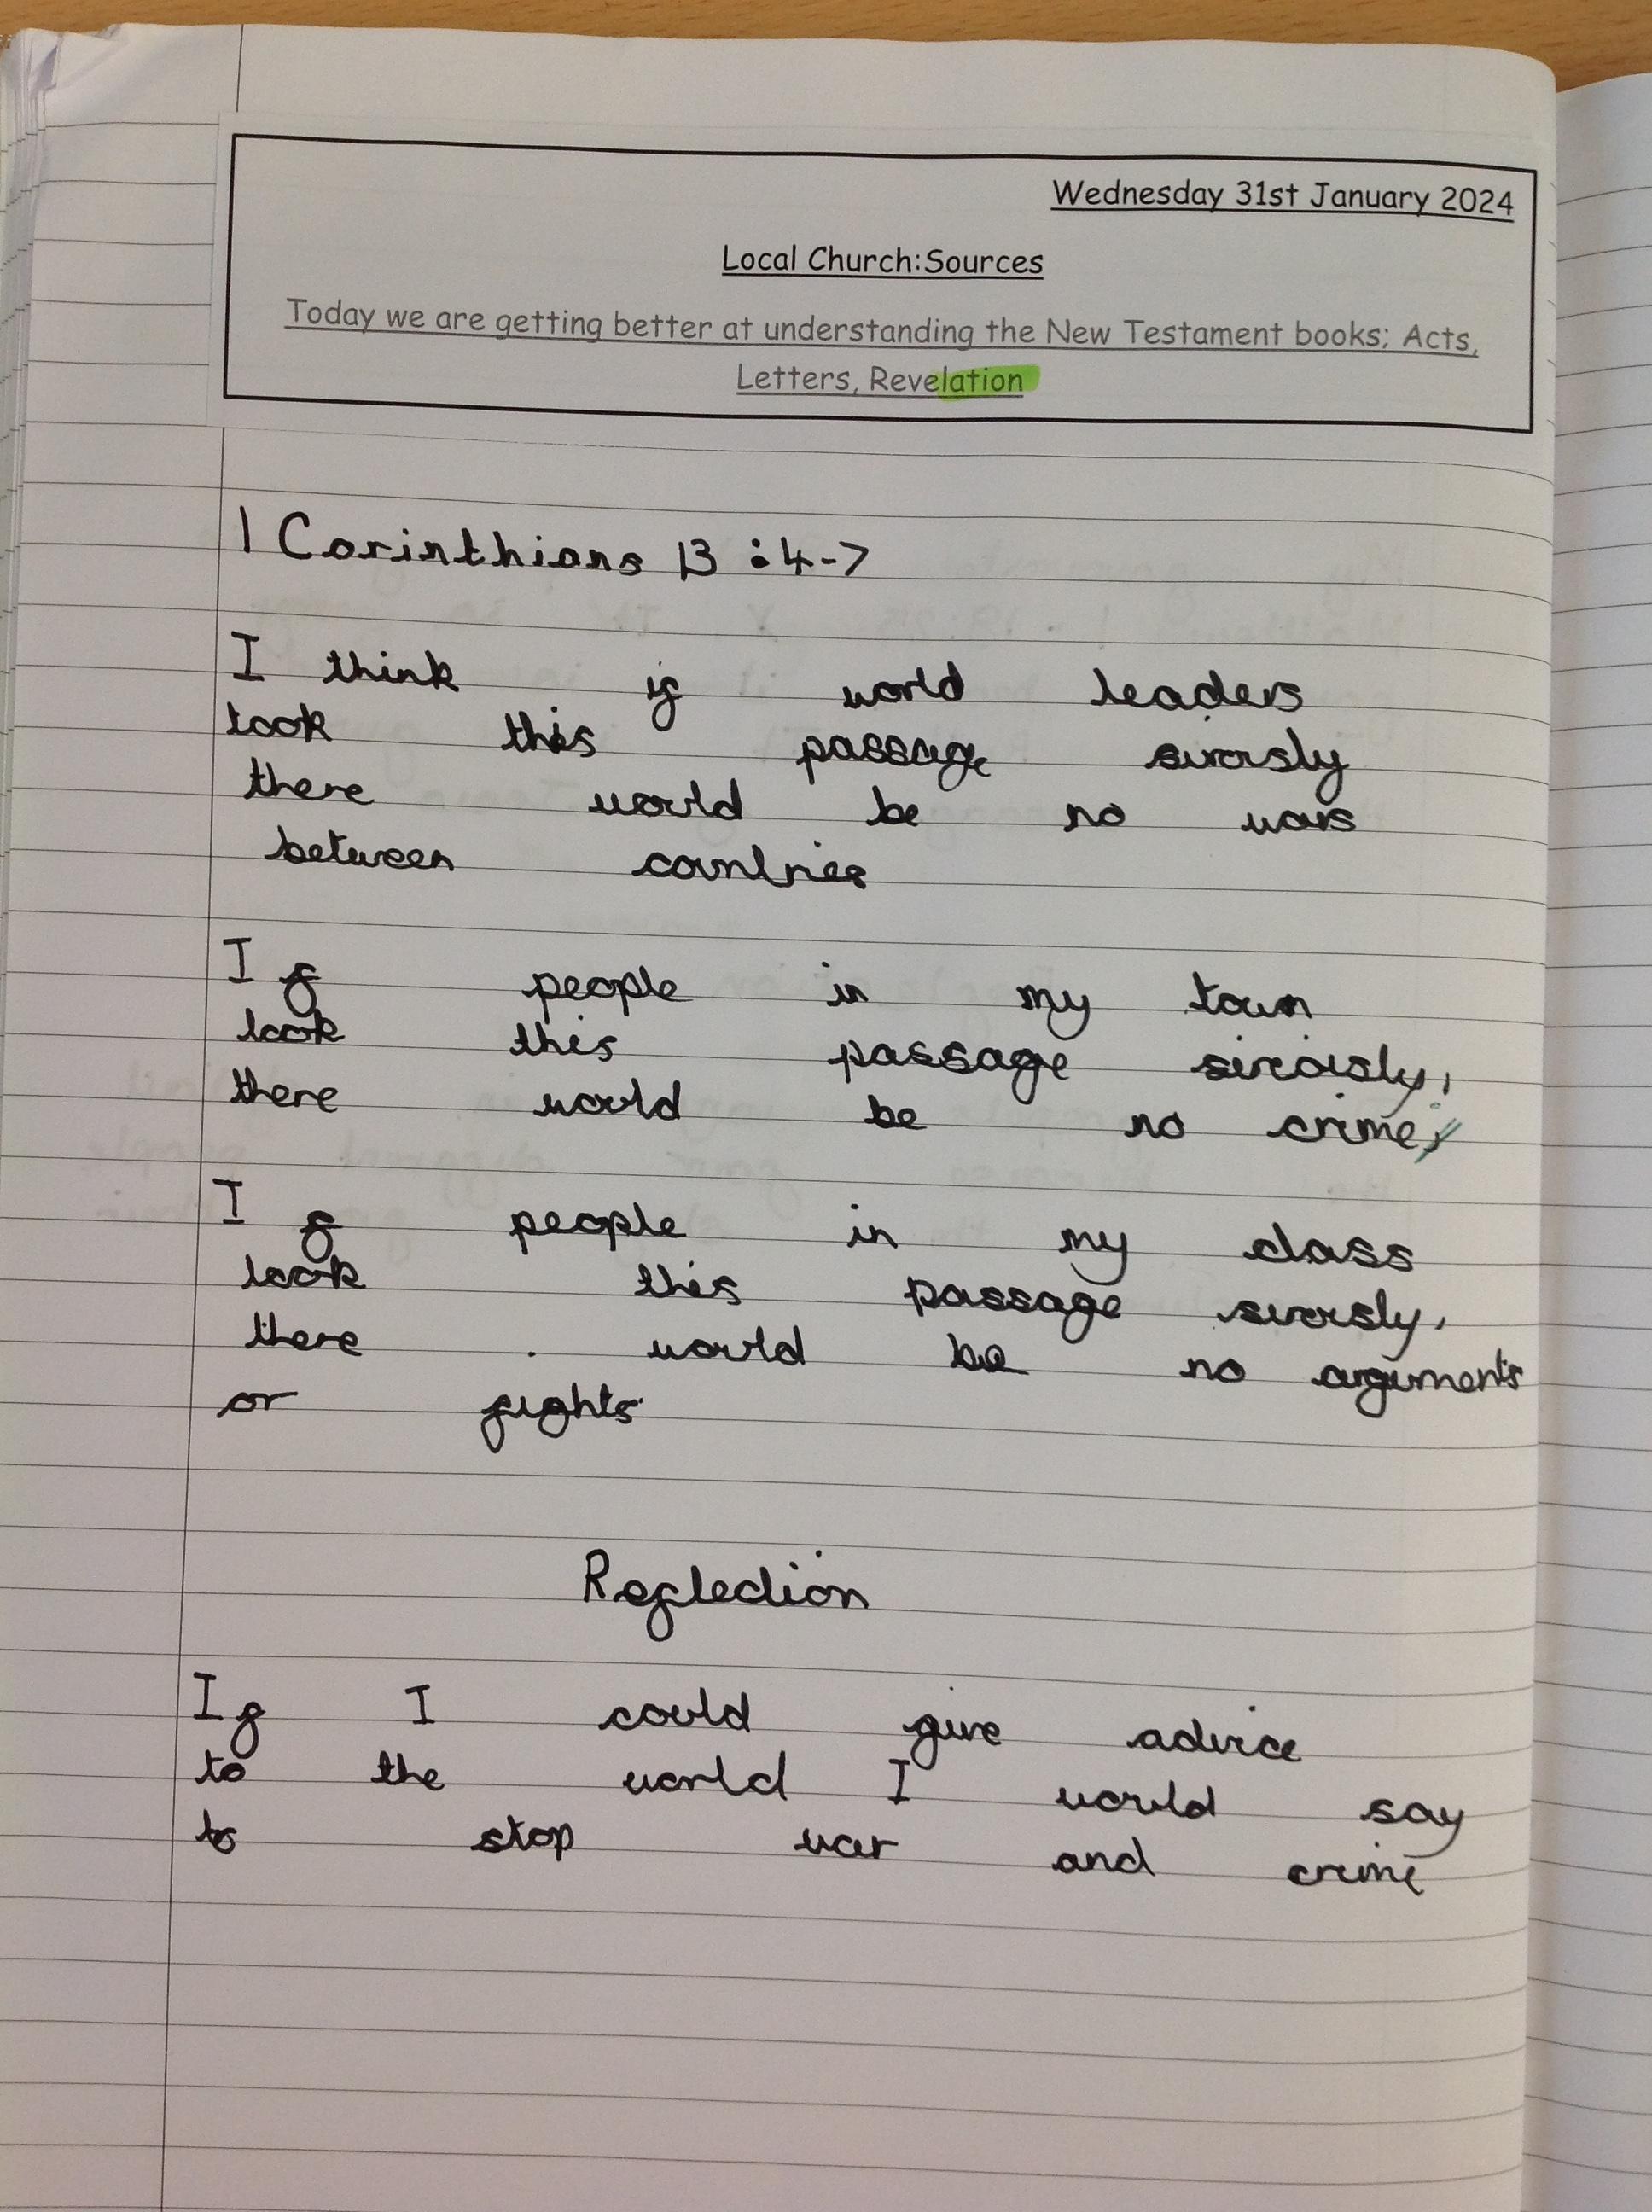 Wednesday 31st January 2024
Local Church:Sources
Today we are getting better at understanding the New Testament books; Acts,
Letters, Revelation
1 Corinthians 13 : 4-7
I think if world leaders
took this passage sirorsly
there would be no wars
between countries
If people in my town
took this passage siroisly,
there would be no crime,
If people in my class
took this passage sirorsly,
there would be no arguments
or fights
Reflection
If I could give advice
to the world I would say
to stop war and crime